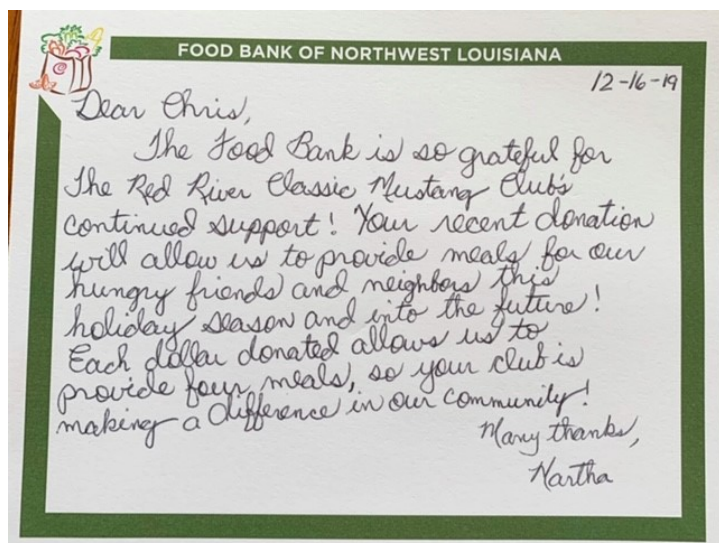 FOOD BANK OF NORTHWEST LOUISIANA
12-16-19
Dear Chris,
The Food Bank is so grateful for
The Red River Classic Mustang Club's
continued support! Your recent donation
will allow us to provide meals for our
hungry friends and neighbors this
holiday season and into the future!
Each dollar donated allows us to
provide four meals, so your club is
making a difference in our community!
Many thanks,
Martha